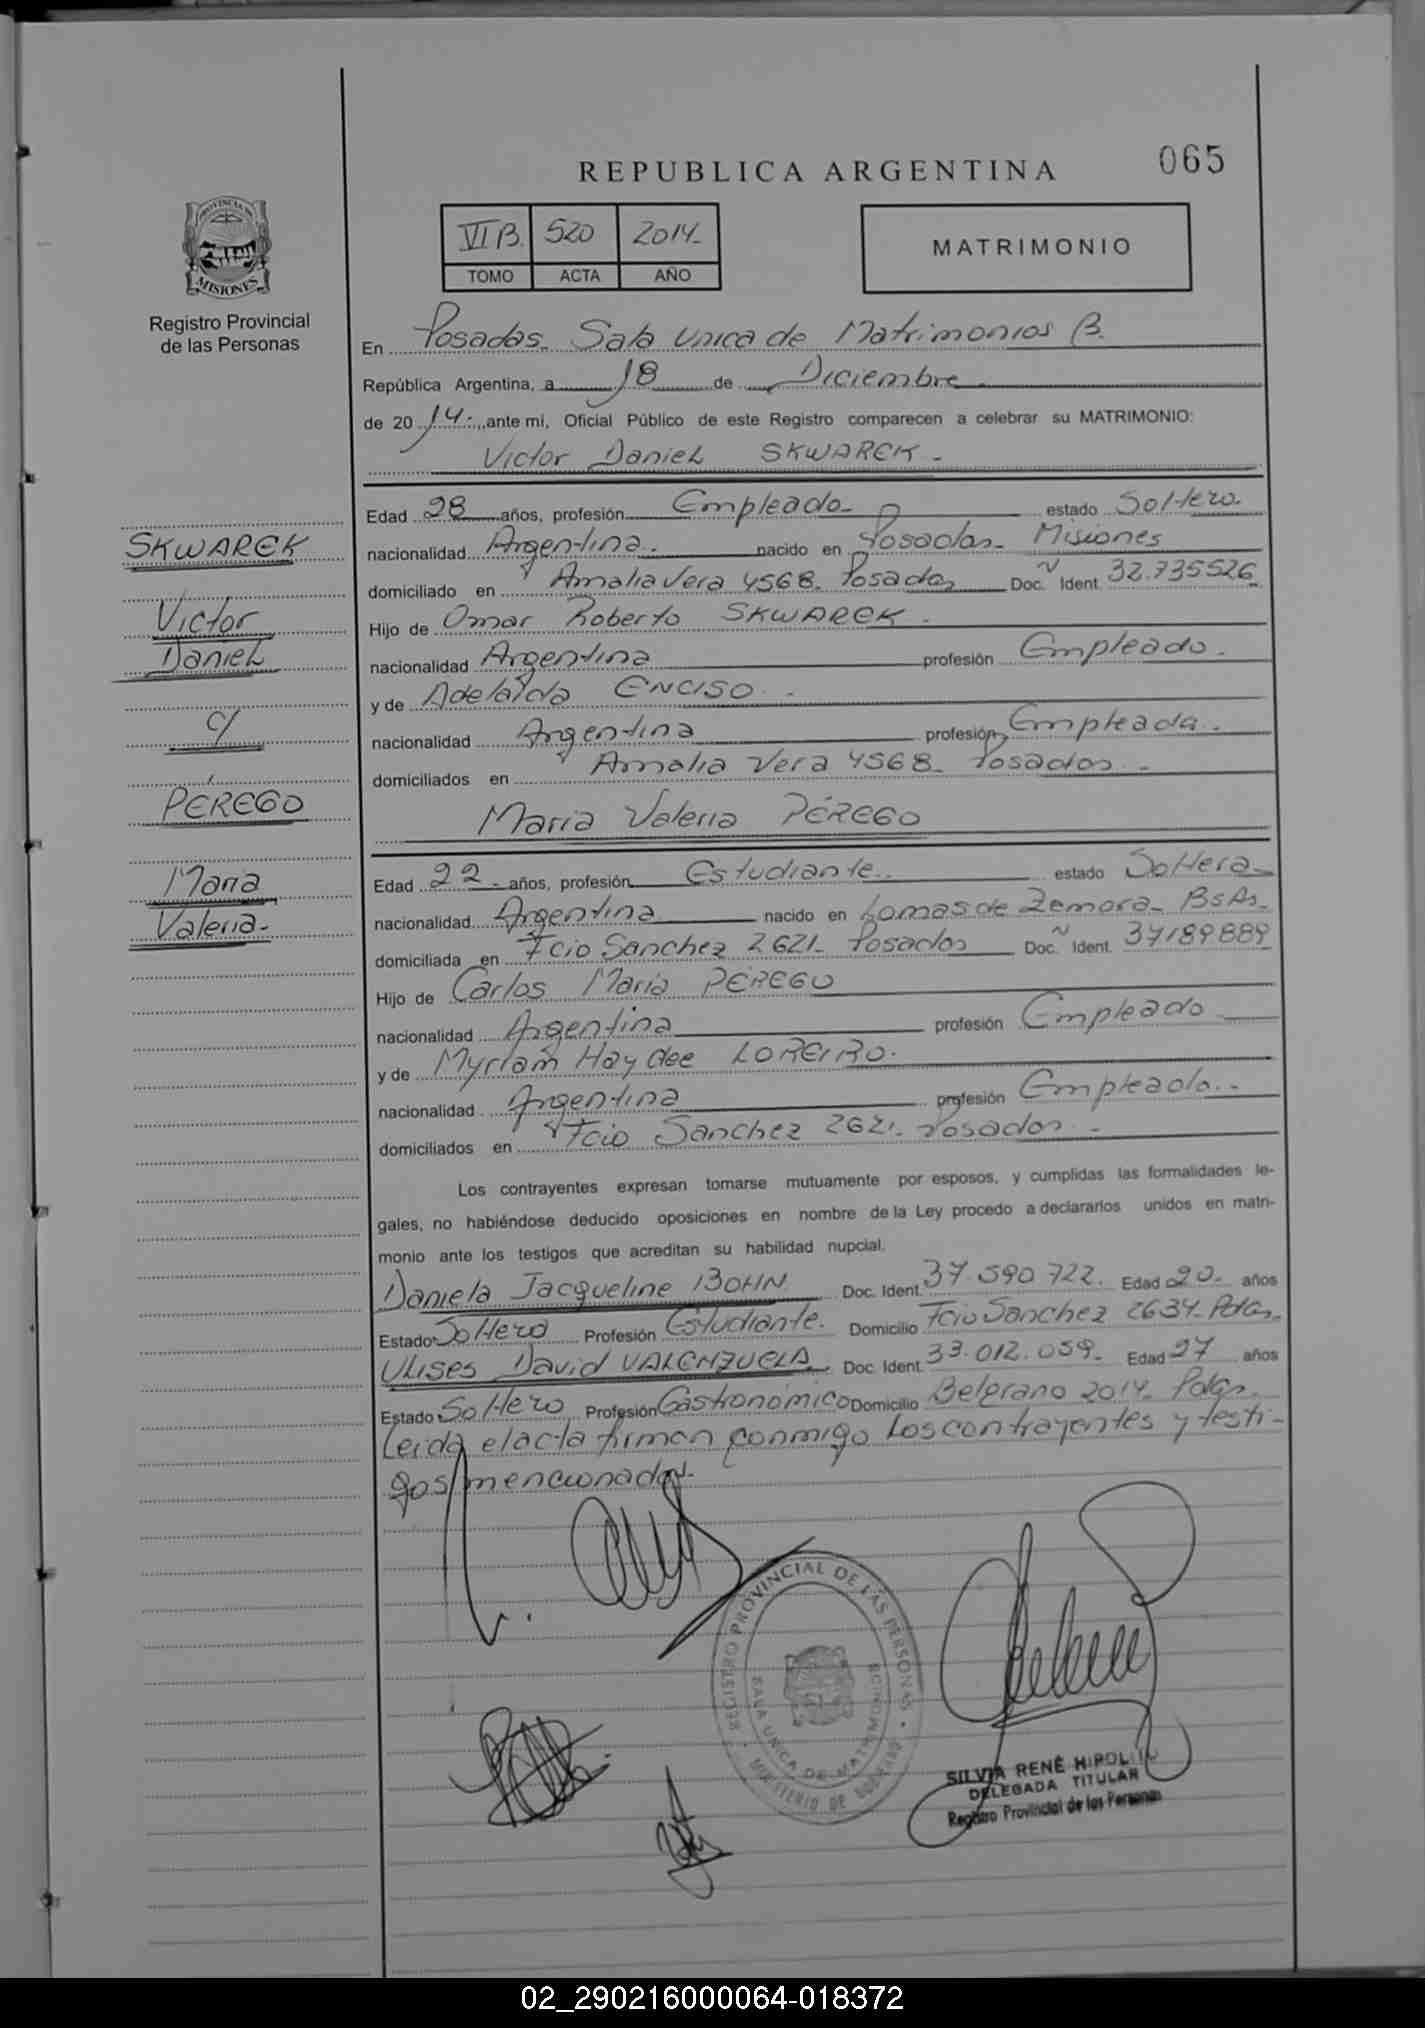 REPUBLICA ARGENTINA
065
PROVINCIA DE
MISIONES
Registro Provincial
de las Personas
VI B. 520 2014-
TOMO ACTA AÑO
MATRIMONIO
En Posadas. Sala Unica de Matrimonios B.
República Argentina, a 18 de Diciembre.
de 2014. ante mi, Oficial Público de este Registro comparecen a celebrar su MATRIMONIO:
Victor Daniel SKWAREK.
Edad 28 años, profesión Empleado- estado Soltero.
nacionalidad Argentina. nacido en Posadas- Misiones
domiciliado en Amalia Vera 4568- Posadas Doc. Ident. 32.735526
Hijo de Omar Roberto SKWAREK.
nacionalidad Argentina profesión Empleado.
y de Adelaida ENCISO.
nacionalidad Argentina profesión Empleada.
domiciliados en Amalia Vera 4568- Posadas.
Maria Valeria PÉREGO
Edad 22- años, profesión Estudiante. estado Soltera-
nacionalidad Argentina nacido en Lomas de Zamora- BsAs-
domiciliada en Fcio Sanchez 2621- Posadas Doc. Ident. 37189889
Hijo de Carlos Maria PÉREGO
nacionalidad Argentina profesión Empleado
y de Myriam Haydee LOREIRO.
nacionalidad Argentina profesión Empleada.
domiciliados en Fcio Sanchez 2621- Posadas.
Los contrayentes expresan tomarse mutuamente por esposos, y cumplidas las formalidades le-
gales, no habiéndose deducido oposiciones en nombre de la Ley procedo a declararlos unidos en matri-
monio ante los testigos que acreditan su habilidad nupcial.
Daniela Jacqueline BOHN Doc. Ident. 37.590.722. Edad 20. años
Estado Soltero Profesión Estudiante. Domicilio Fcio Sanchez 2634- Pdas.
Ulises David VALENZUELA Doc. Ident. 33.012.059- Edad 27 años
Estado Soltero Profesión Gastronómico Domicilio Belgrano 2014- Pdas.
Leida el acta firman conmigo Los contrayentes y testi-
gos mencionados.
SKWAREK
Victor
Daniel
c/
PÉREGO
Maria
Valeria-
REGISTRO PROVINCIAL DE LAS PERSONAS
SALA UNICA DE MATRIMONIOS
MINISTERIO DE GOBIERNO
SILVIA RENÉ
DELEGADA TITULAR
Registro Provincial de las Personas
02_290216000064-018372